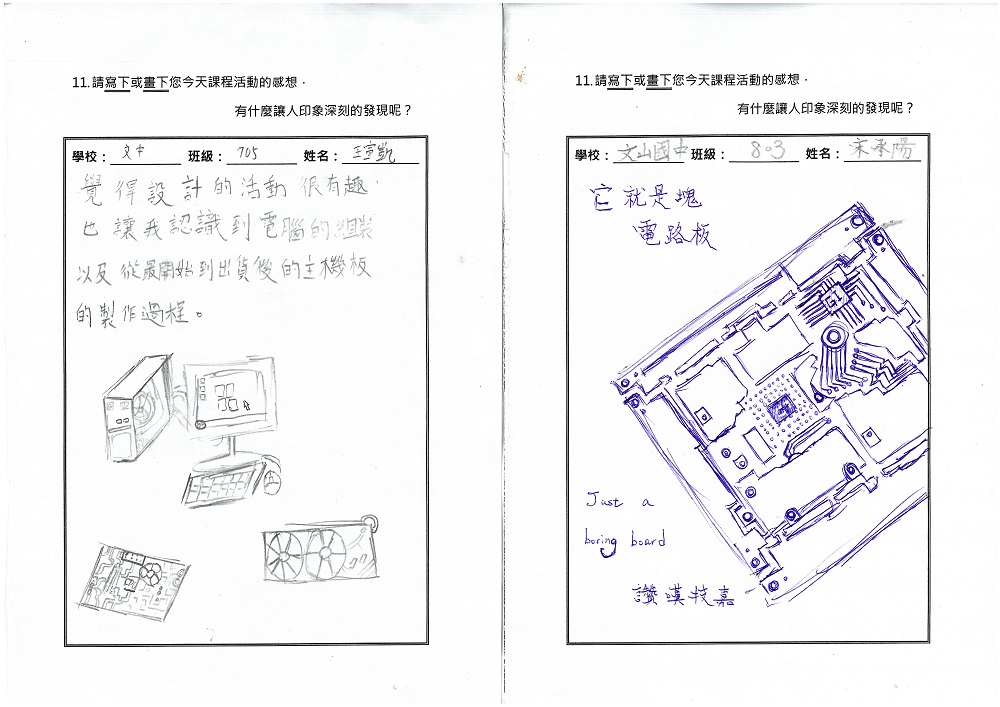 11.請寫下或畫下您今天課程活動的感想．
有什麼讓人印象深刻的發現呢？
學校： 文中 班級： 705 姓名： 王宣凱
覺得設計的活動很有趣
也讓我認識到電腦的組裝
以及從最開始到出貨後的主機板
的製作過程。
11.請寫下或畫下您今天課程活動的感想．
有什麼讓人印象深刻的發現呢？
學校： 文山國中 班級： 803 姓名： 宋承陽
它就是塊
電路板
Just a
boring board
讚嘆技嘉